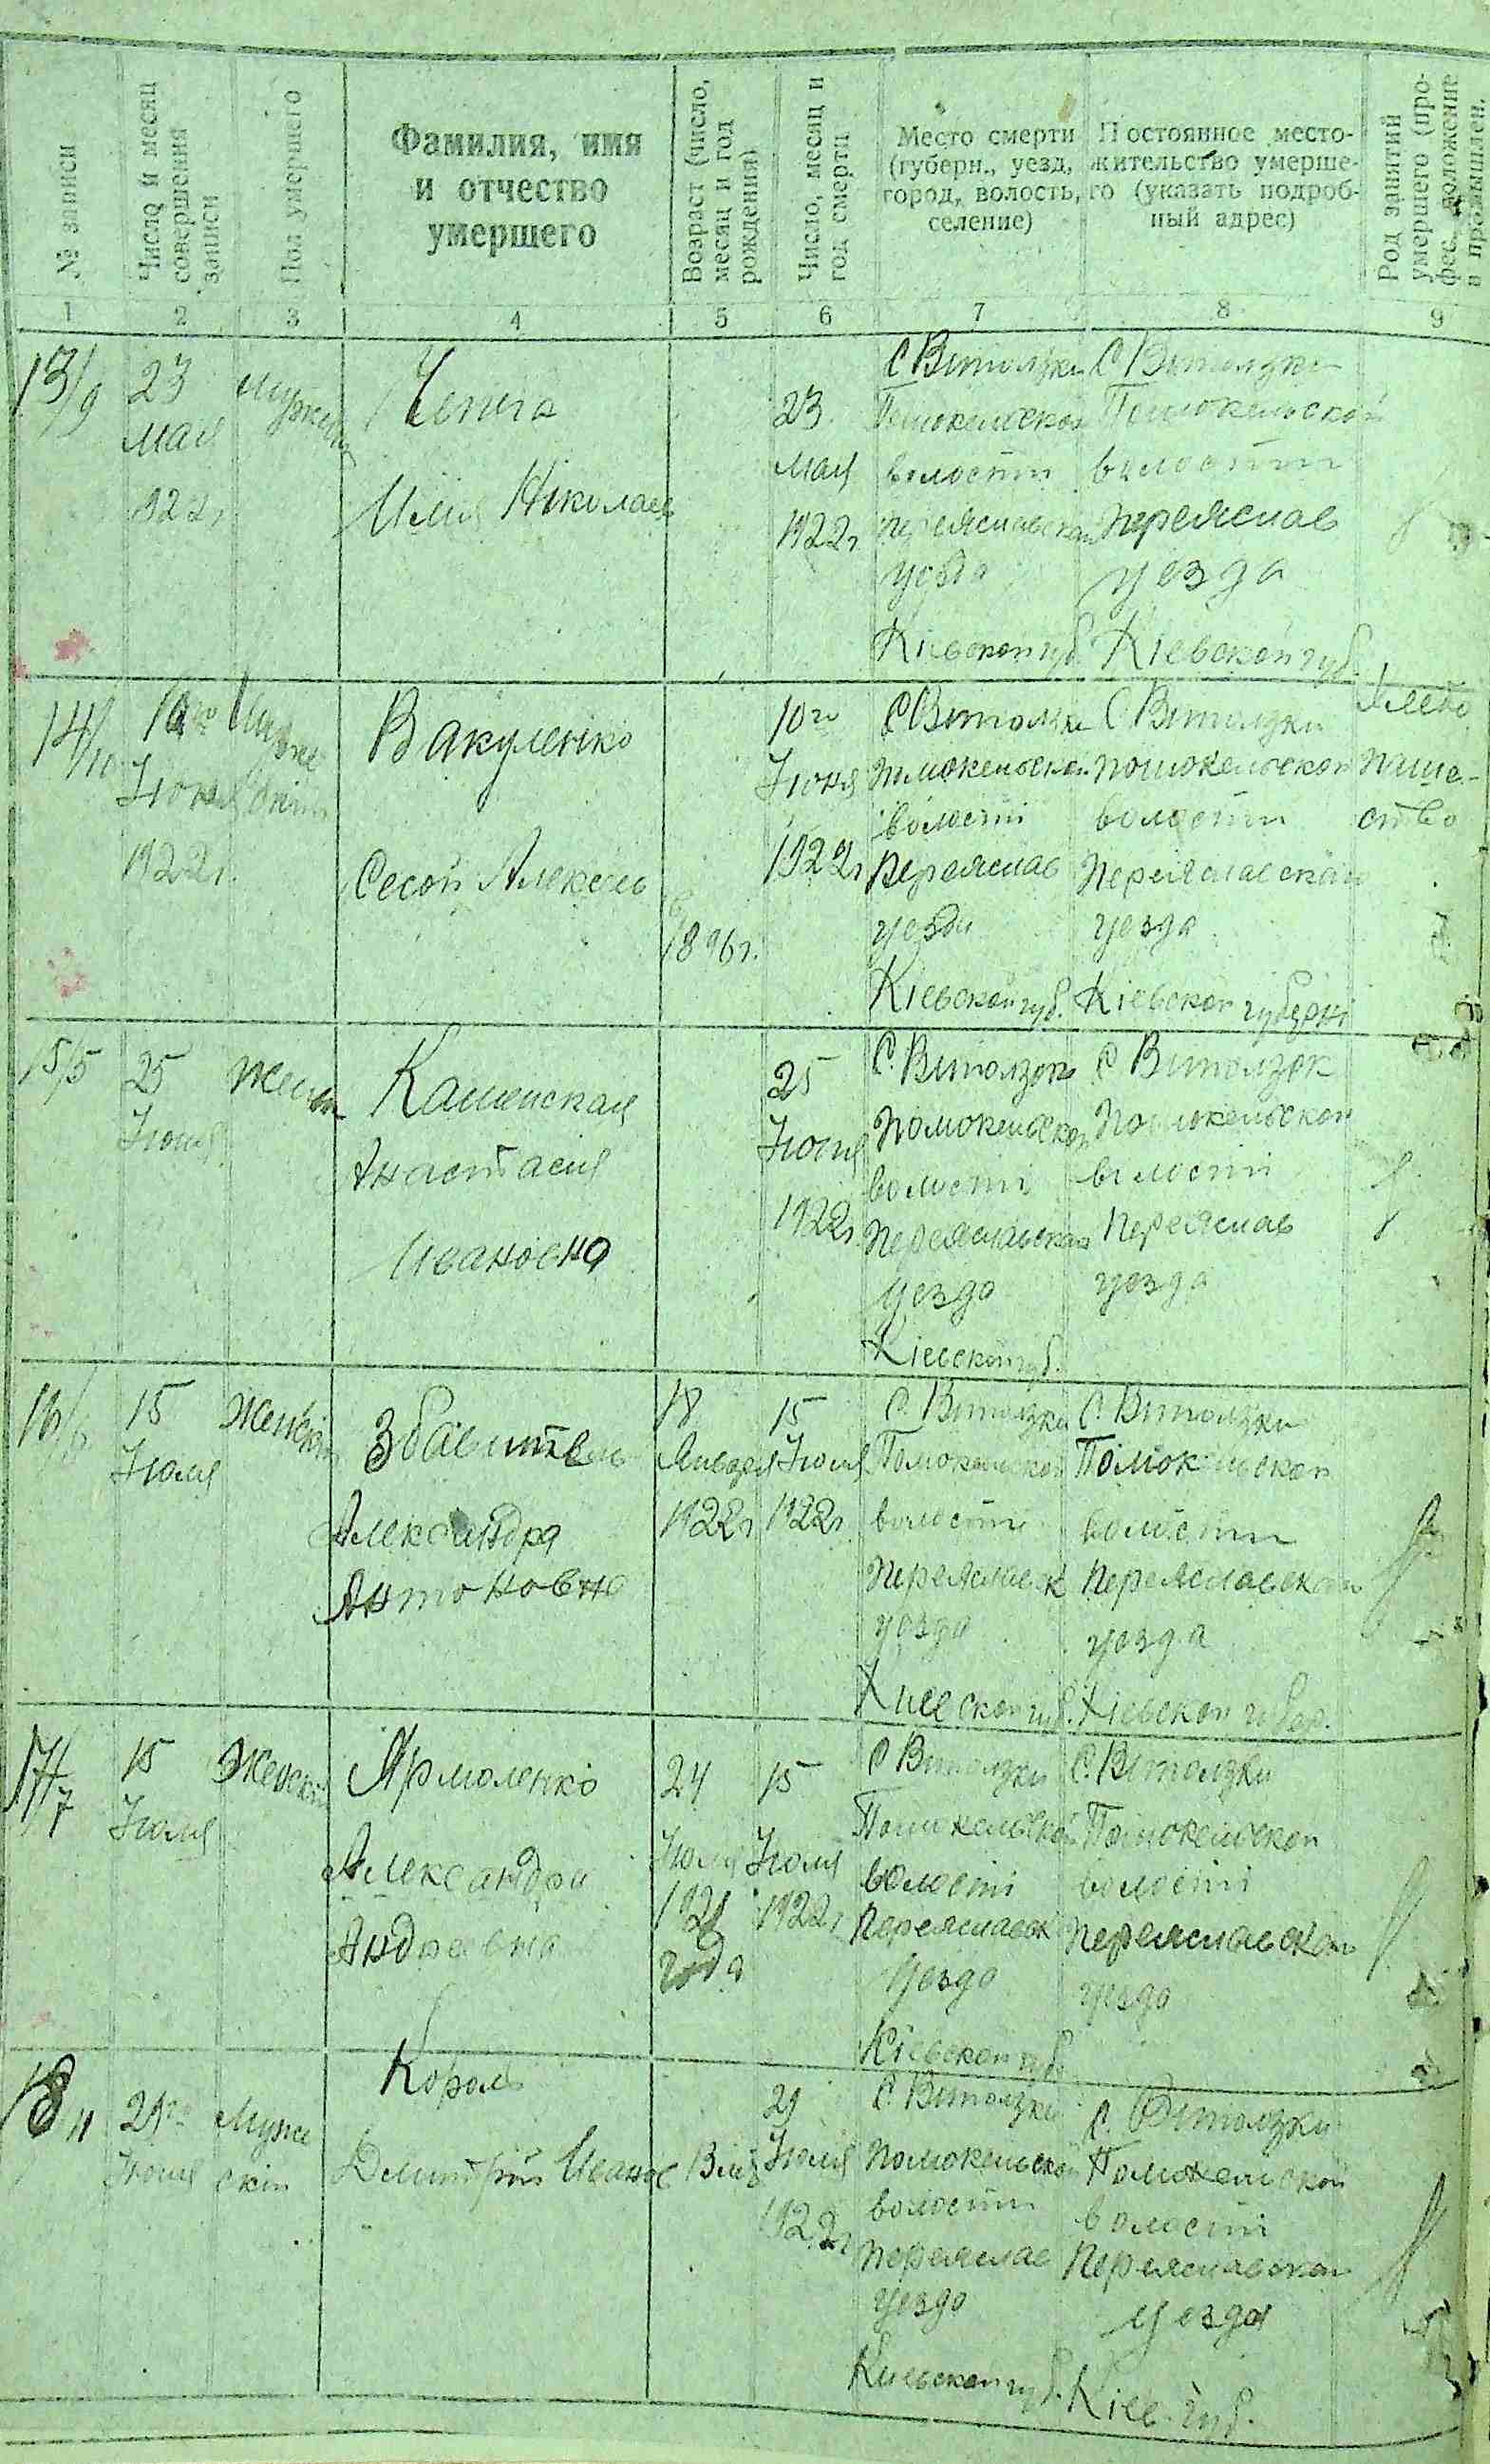 № записи
Число и месяц совершения записи
Пол умершего
Фамилия, имя
и отчество
умершего
Возраст (число, месяц и год рождения)
Число, месяц и год смерти
Место смерти
(губерн., уезд,
город, волость,
селение)
Постоянное место-
жительство умерше-
го (указать подроб-
ный адрес)
Род занятий
умершего (про-
фес. положение
в промышлен.
1 2 3 4 5 6 7 8 9
13/9
23
мая
922г
Чепига
Илия Ніколаев
23
мая
1922г
С Витолзки
волости
уезда
Кіевской губ.
С Витолзки
волости
Переяслав
уезда
Кіевской губ.
14/10
Іюня
1922г.
Вакуленко
Сесой Алексеев
1896г.
10го
Іюня
1922г
С Витолзки
волості
Переяслав
уезда
Кіевской губ.
С Витолзки
Помокельской
волости
Переяславской
уезда
Кіевской губерні
Хлебо
паше-
ство
15/5
25
Іюня
Женск
Каменская
Анастасия
Ивановна
25
Іюня
1922г
С. Витолзок
Помокельской
волості
Переяславской
уезда
Кіевской губ.
С Витолзок
Помокельской
волості
Переяслав
уезда
16/6
15
Іюля
Женскій
Збавитель
Александра
Антоновна
18
Января
1922г
15
Іюля
1922г
С. Витолзки
Помокельской
волости
Переяславск
уезда
Киевской губ.
С. Витолзки
Помокельской
волости
Переяславской
уезда
Кіевской губер.
17/7
15
Іюля
Женскій
Ярмоленко
Александра
Андреевна
24
Іюля
1921
года
15
Іюля
1922г
С Витолзки
Помокельской
волості
Переяславск
уезда
Кіевской губ
С. Витолзки
Помокельской
волості
Переяславской
уезда
18/11
29го
Іюля
Муже
скій
Король
Дмитрій Иванов
29
Іюля
1922г
С. Витолзки
Помокельской
волости
Переяслав
уезда
Киевской губ.
С. Витолзки
Помокельской
волості
Переяславской
уезда
Кіев. губ.